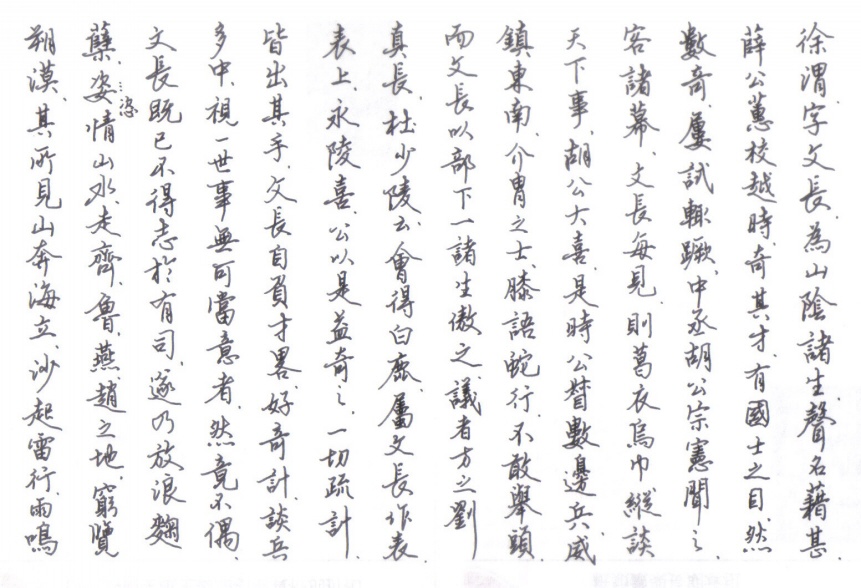 徐渭、字文長、為山陰諸生、聲名藉甚、
薛公蕙校越時、奇其才、有國士之目、然
數奇、屢試輒蹶、中丞胡公宗憲聞之、
客諸幕、文長每見、則葛衣烏巾、縱談
天下事、胡公大喜、是時公督數邊兵、威
鎮東南、介冑之士、膝語蛇行、不敢舉頭、
而文長以部下一諸生傲之、議者方之劉
真長、杜少陵云、會得白鹿、屬文長作表、
表上、永陵喜、公以是益奇之、一切疏計、
皆出其手、文長自負才畧、好奇計、談兵
多中、視一世事無可當意者、然竟不偶、
文長既已不得志於有司、遂乃放浪麴
蘗、姿情山水、走齊、魯、燕趙之地、窮覽
恣
朔漠、其所見山奔海立、沙起雷行、雨鳴